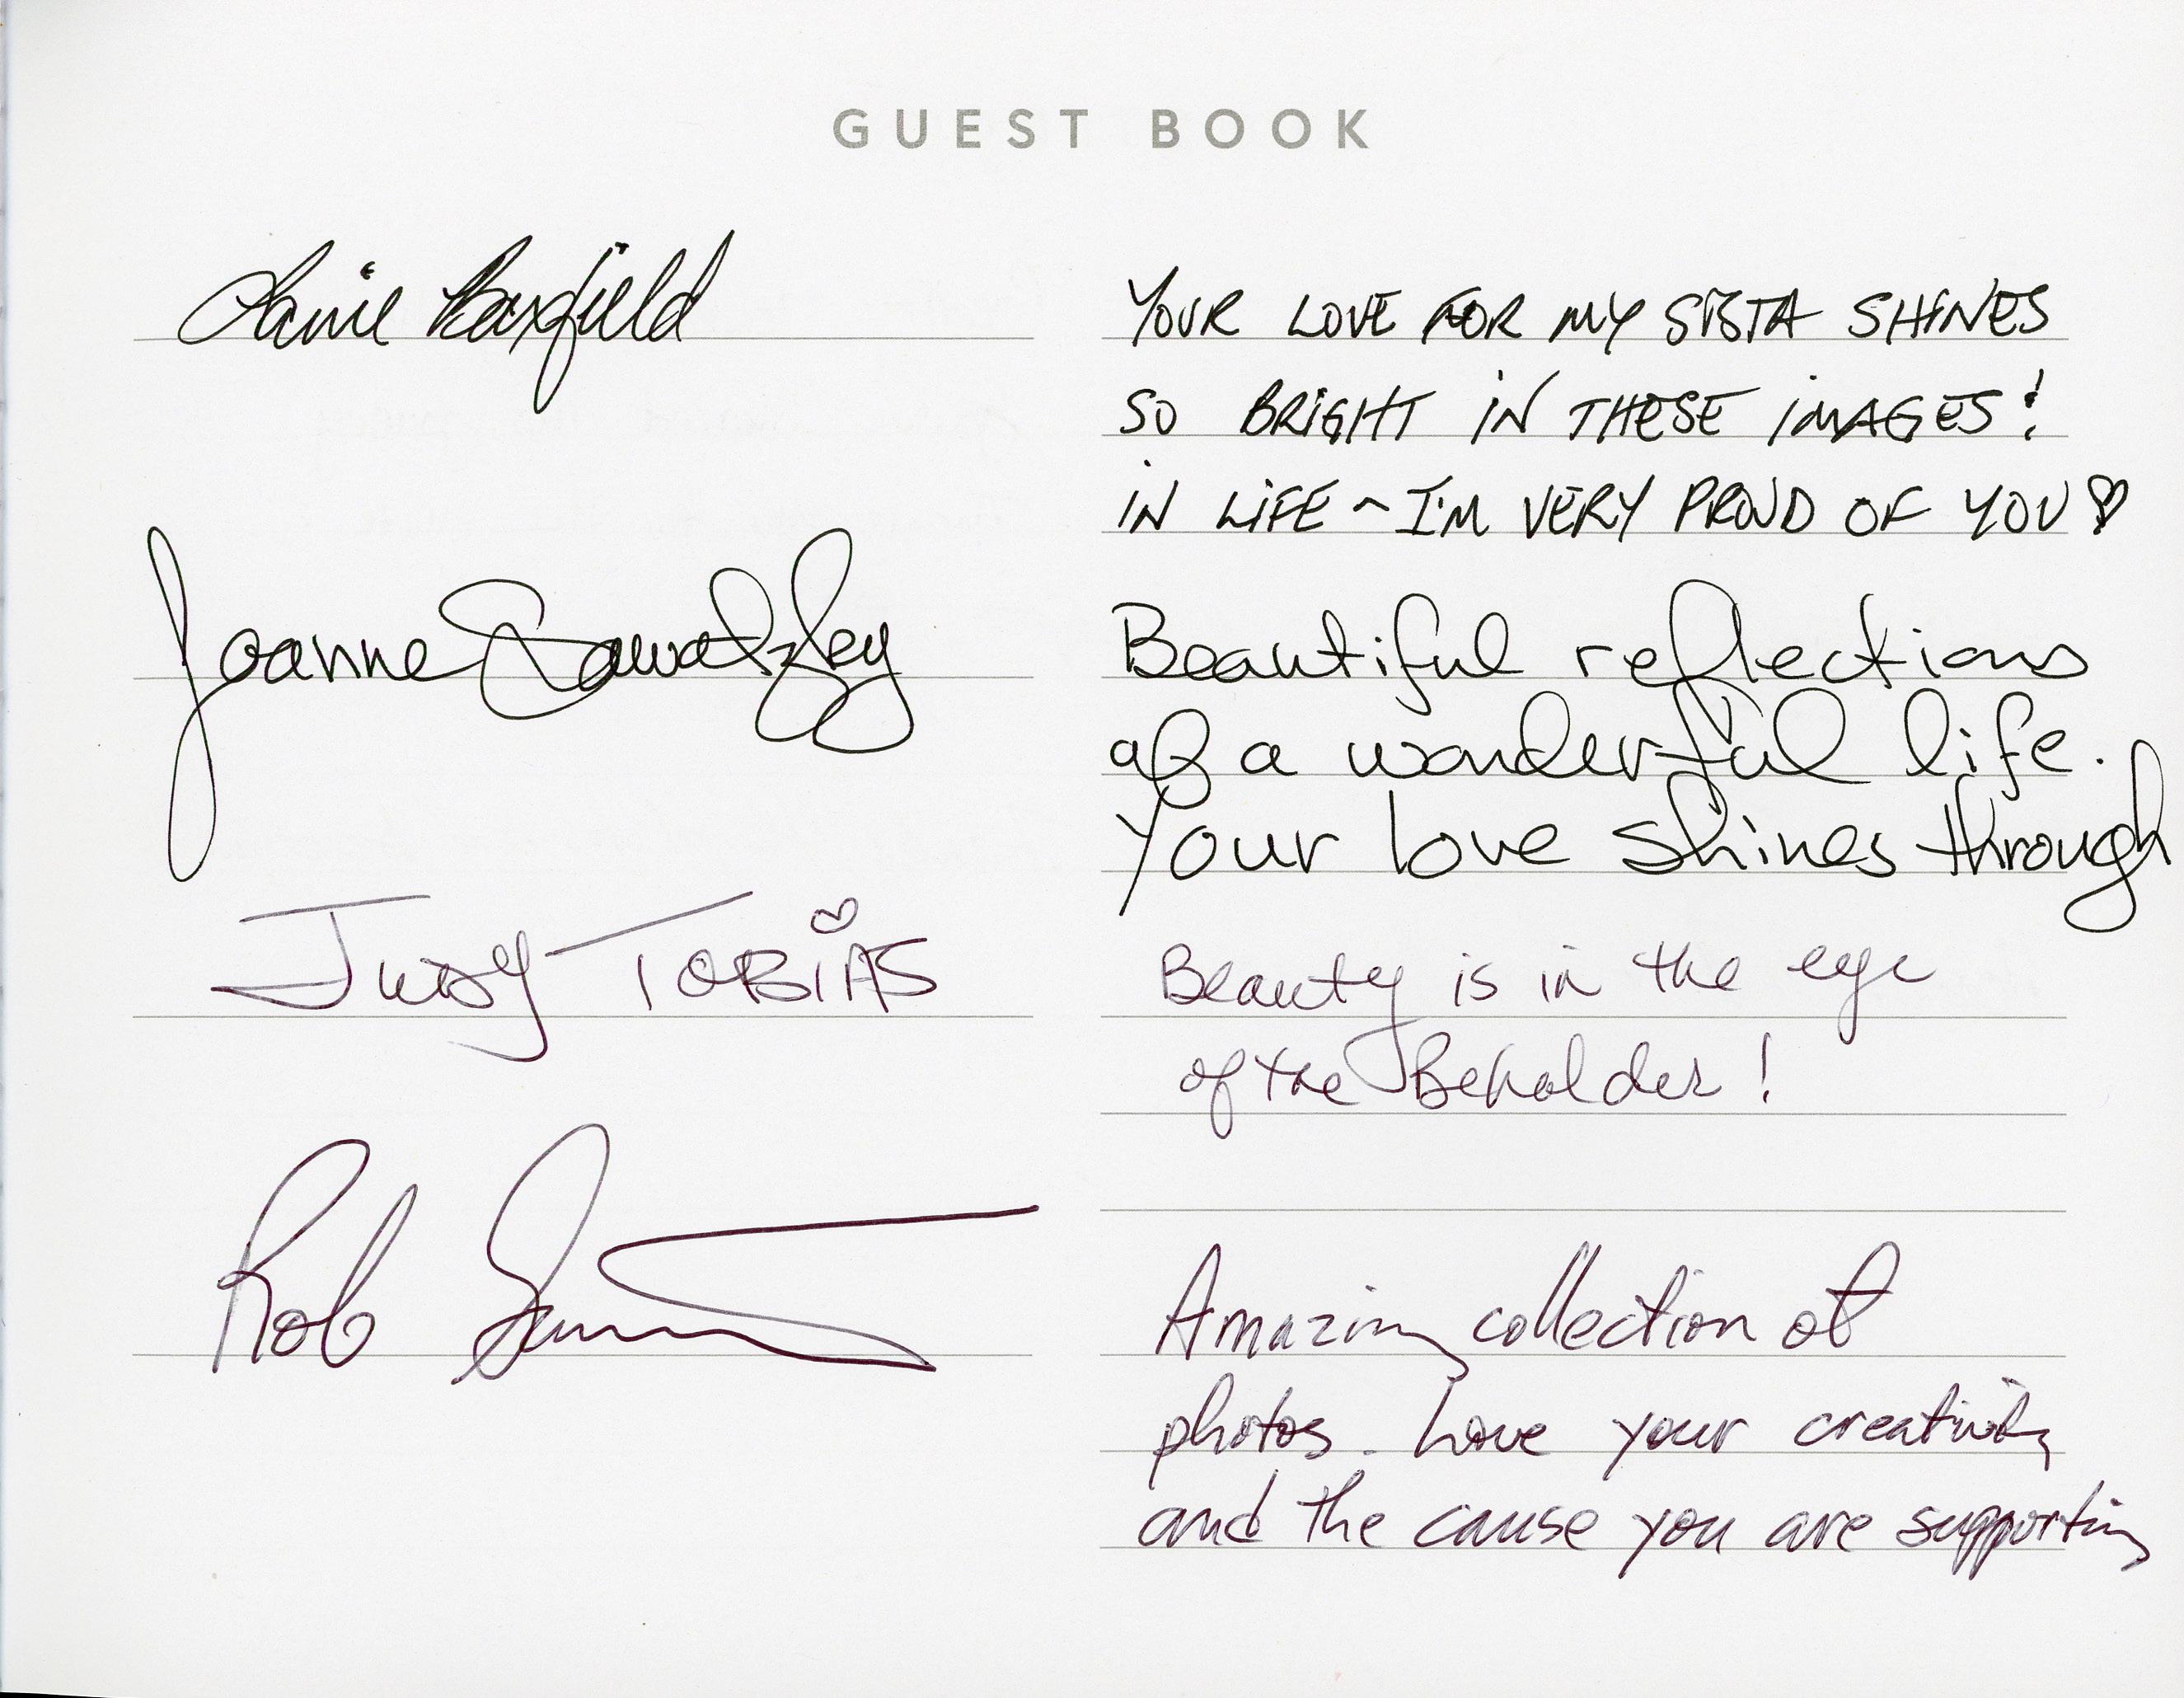 GUEST BOOK
YOUR LOVE FOR MY SISTA SHINES
SO BRIGHT IN THESE IMAGES!
IN LIFE ~ I'M VERY PROUD OF YOU ♡
Joanne Sawatzky
Beautiful reflections
of a wonderful life.
Your love shines through
JUDY TOBIAS
Beauty is in the eye
of the Beholder!
Rob
Amazing collection of
photos. Love your creativity
and the cause you are supporting